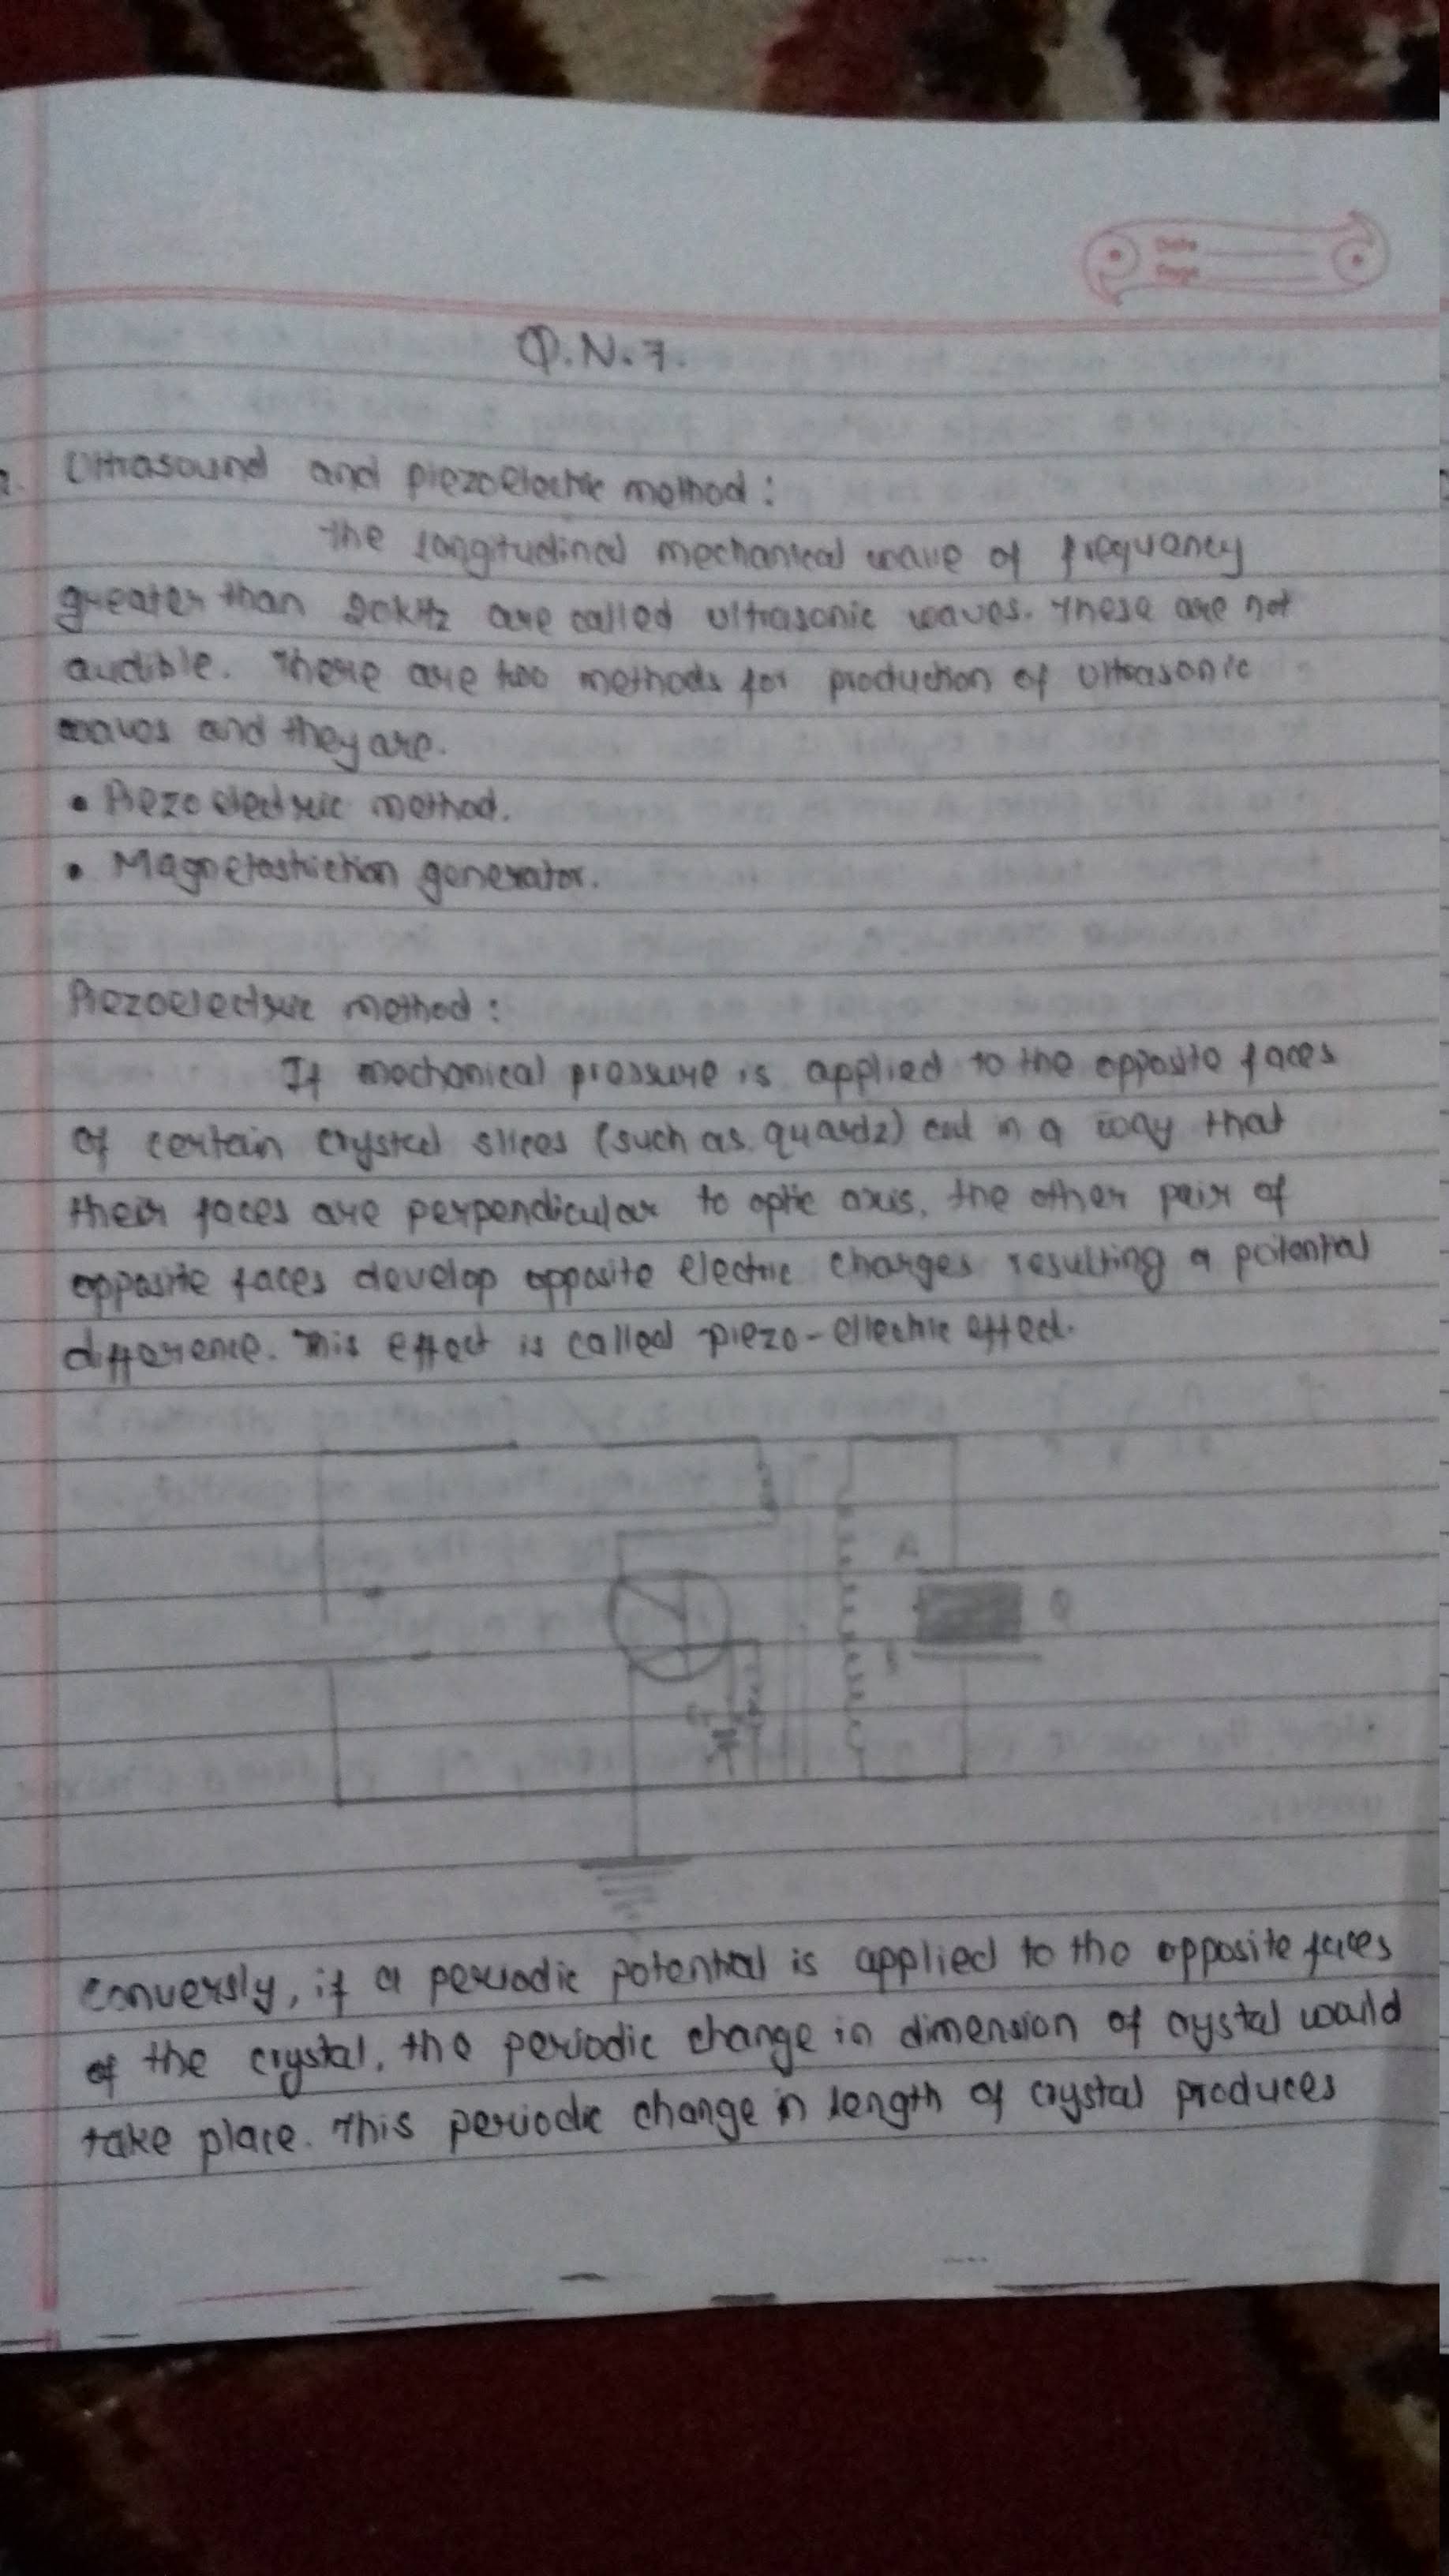 Date
Page
Q.N.7.
Ultrasound and piezoelectric method:
The longitudinal mechanical wave of frequency
greater than 20kHz are called ultrasonic waves. These are not
audible. There are two methods for production of ultrasonic
waves and they are.
• Piezoelectric method.
• Magnetostriction generator.
Piezoelectric method:
If mechanical pressure is applied to the opposite faces
of certain crystal slices (such as quartz) cut in a way that
their faces are perpendicular to optic axis, the other pair of
opposite faces develop opposite electric charges resulting a potential
difference. This effect is called piezo-electric effect.
A
Q
conversly, if a periodic potential is applied to the opposite faces
of the crystal, the periodic change in dimension of crystal would
take place. This periodic change in length of crystal produces